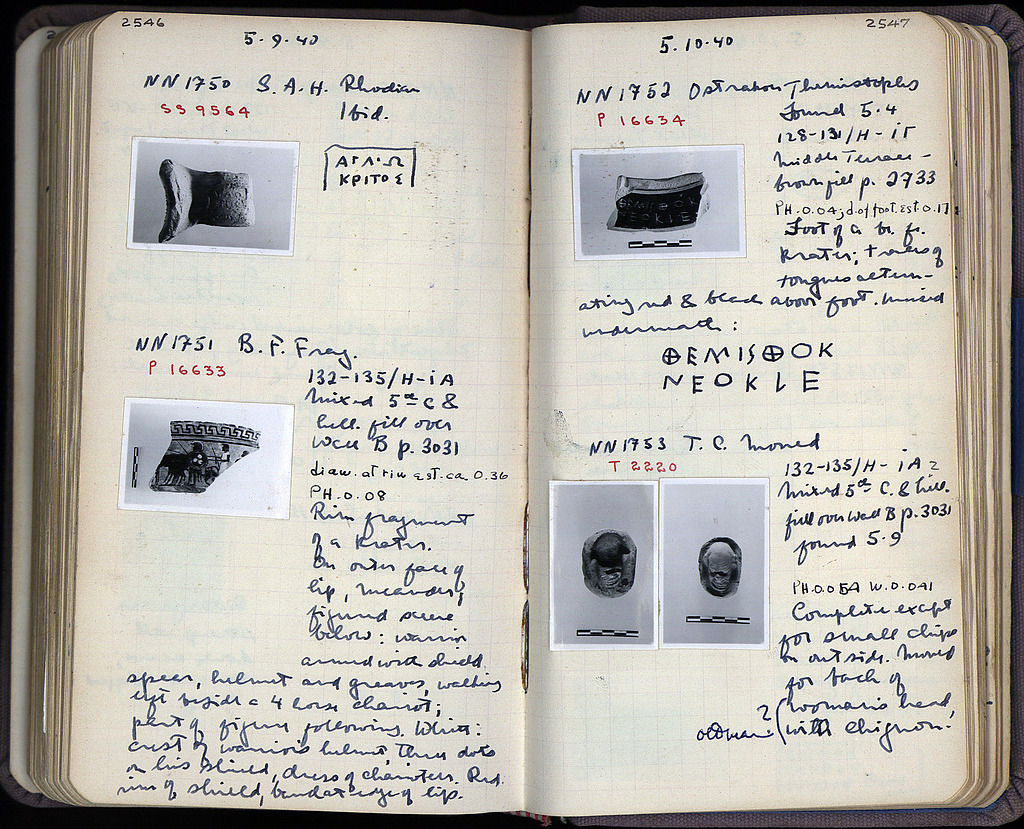 2546
5·9·40
NN1750 S.A.H. Rhodian
SS 9564
Ibid.
ΚΡΙΤΟΣ
NN1751 B.F. Frag.
P 16633
132-135/H-ΙΑ
Mixed 5th C &
hell. fill over
Wall B p. 3031
diam. at rim est. ca. 0.36
PH. 0.08
Rim fragment
of a Krater.
On outer face of
lip, meander;
figured scene
below: warrior
armed with shield,
spear, helmet and greaves, walking
left beside a 4 horse chariot;
part of figure following. White:
crest of warrior's helmet, three dots
on his shield, dress of charioteer. Red:
rim of shield, band at edge of lip.
2547
5·10·40
NN1752 Ostrakon Themistocles
P 16634
Found 5·4
128-131/H-ΙΓ
Middle Terrace -
brown fill p. 2733
PH. 0.04; d. of foot. est. 0.17
Foot of a bl. f.
Krater; traces of
tongues altern-
ating red & black above foot. Incised
underneath:
ⴲEMISⴲOK
NEOKLE
NN1753 T.C. Mould
T 2220
132-135/H-ΙΑ 2
Mixed 5th C. & hell.
fill over Wall B p. 3031
found 5·9
PH. 0.054 W. 0.041
Complete except
for small chips
on outside. Mould
for back of
woman's head,
old man? (with chignon.